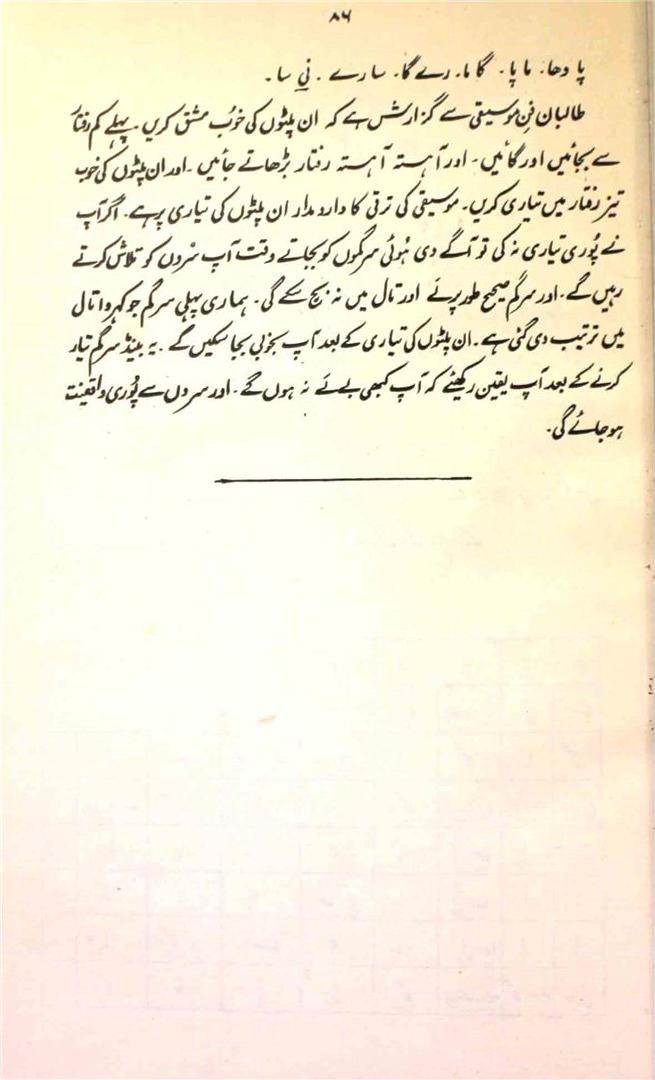 ۸۶
پا دھا۔ ما پا۔ گا ما۔ رے گا۔ سا رے ۔ نی سا ۔
طالبان فنِ موسیقی سے گزارش ہے کہ ان پلٹوں کی خوُب مشق کریں ۔ پہلے کم رفتار
سے بجائیں اور گائیں۔ اور آہستہ آہستہ رفتار بڑھاتے جائیں ۔ اور ان پلٹوں کی خوب
تیز رفتار میں تیاری کریں۔ موسیقی کی ترقی کا دارومدار ان پلٹوں کی تیاری پر ہے۔ اگر آپ
نے پوُری تیاری نہ کی تو آگے دی ہوُئی سرگموں کو بجاتے وقت آپ سُروں کو تلاش کرتے
رہیں گے۔ اور سرگم صحیح طور پر لَے اور تال میں نہ بج سکے گی۔ ہماری پہلی سرگم جو کہروا تال
میں ترتیب دی گئی ہے۔ ان پلٹوں کی تیاری کے بعد آپ بخوبی بجا سکیں گے ۔ یہ بینڈ سرگم تیار
کرنے کے بعد آپ یقین رکھئے کہ آپ کبھی بے لَے نہ ہوں گے۔ اور سروں سے پوُری واقعینت
ہو جائے گی۔